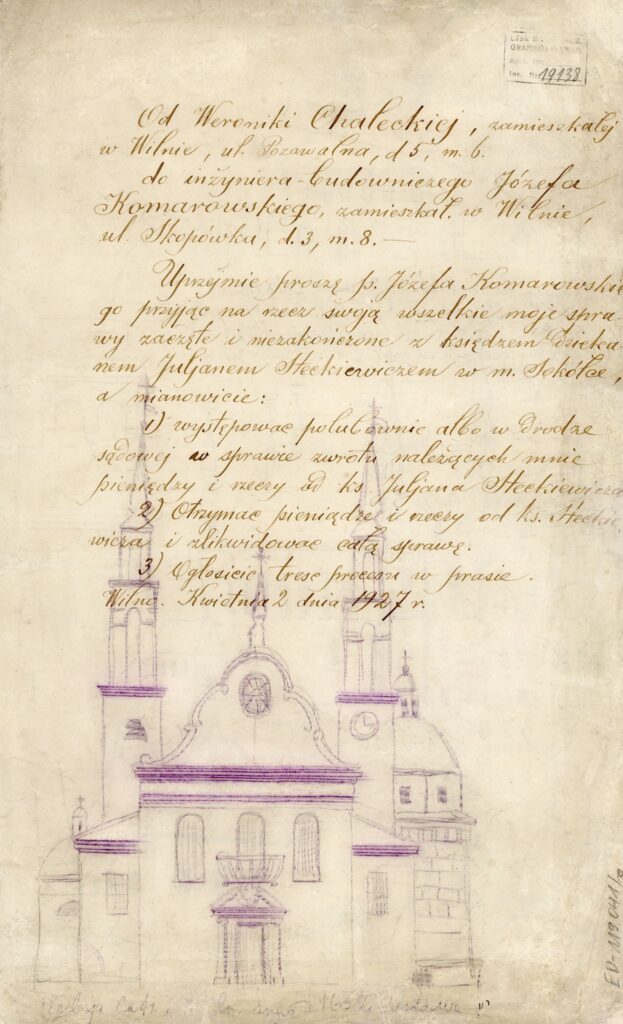 19138
Od Weroniki Chaleckiej, zamieszkałej
w Wilnie, ul. Pozawalna, d 5, m. 6.
do inżyniera-budowniczego Józefa
Komarowskiego, zamieszkał. w Wilnie,
ul. Skopówku, d. 3, m. 8. —
Uprzejmie proszę p. Józefa Komarowskie
go przyjąc na rzecz swoją wszelkie moje spra
wy zaczęte i niezakończone z księdzem Dzieka
nem Juljanem Steckiewiczem w m. Sokółce,
a mianowicie:
1) występowac polubownie albo w drodze
sądowej w sprawie zwrotu należących mnie
pieniędzy i rzeczy od ks. Juljana Steckiewicza
2) Otrzymac pieniądze i rzeczy od ks. Steckie
wicza i zlikwidowac całą sprawę.
3) Oglosicic tresc procesu w prasie.
Wilno. Kwietnia 2 dnia 1927 r.
anno 1652